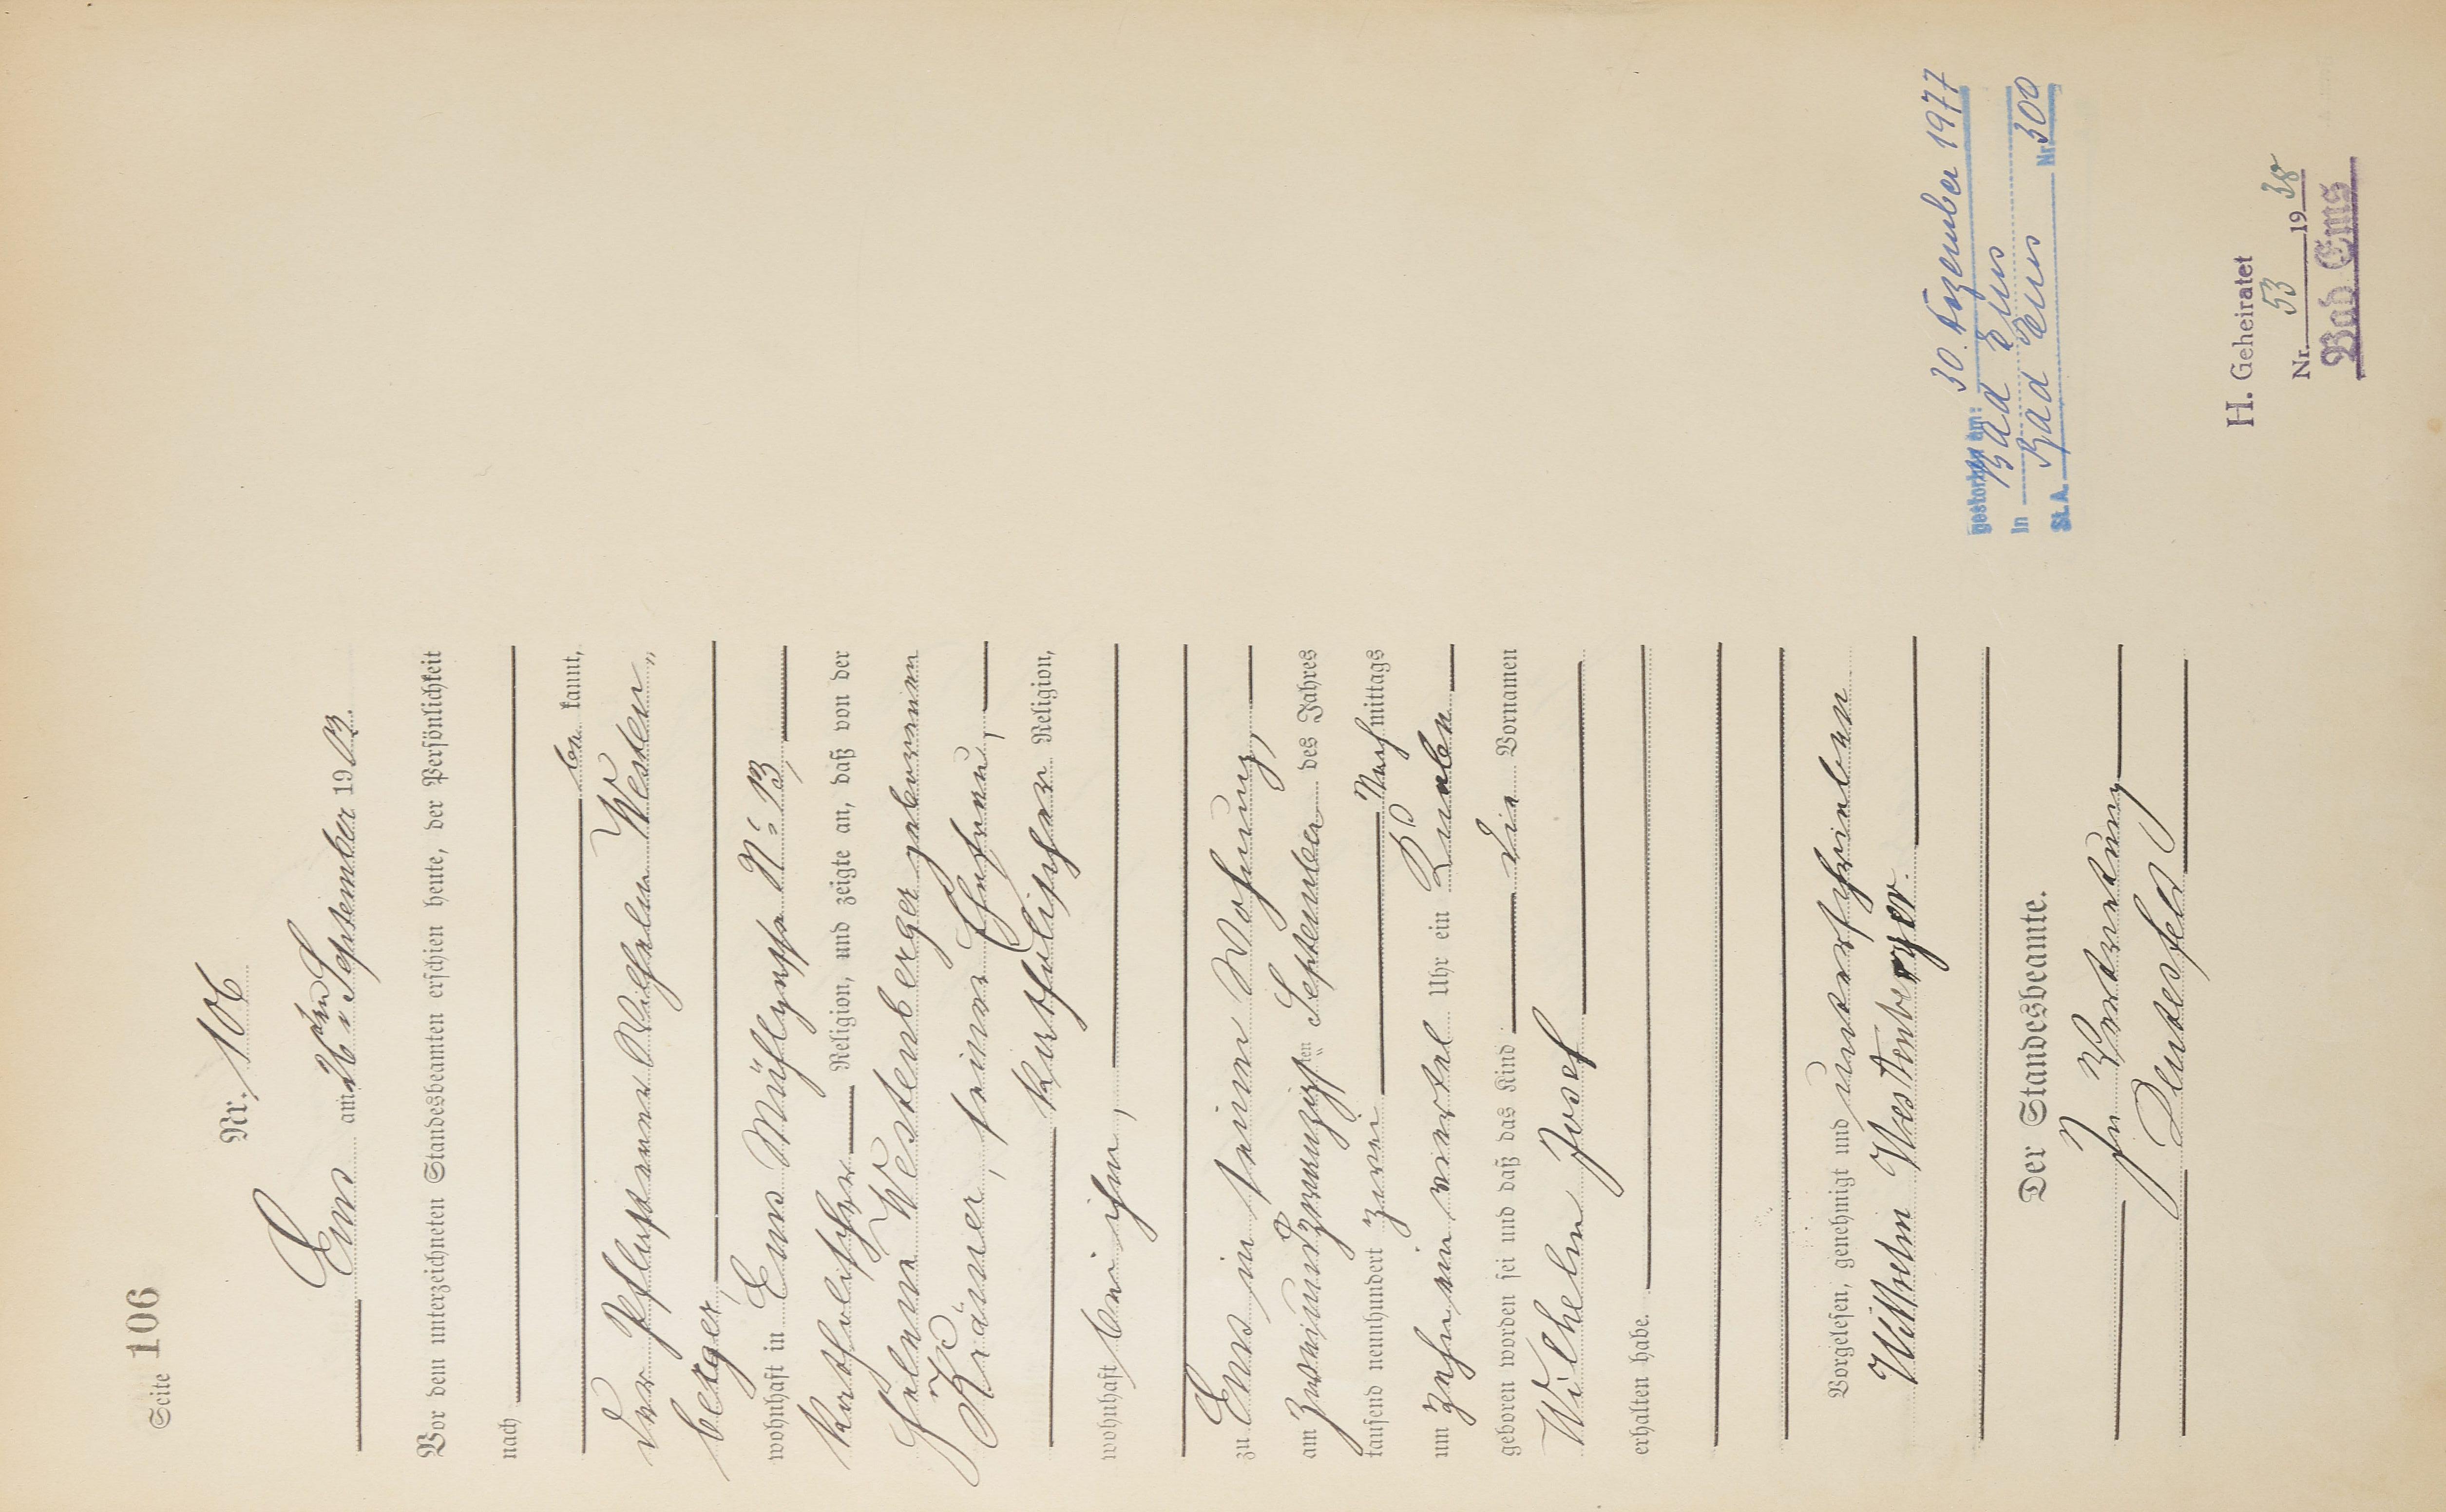 Seite 106
Nr. 106
Ems am 26ten September 1903.
Vor dem unterzeichneten Standesbeamten erschien heute, der Persönlichkeit
nach
be kannt,
der Pflasterer Wilhelm Westen„
berger,
wohnhaft in Ems Mühlgasse No 13,
katholischer Religion, und zeigte an, daß von der
Helene Westenberger geborenen
Krämer, seiner Ehefrau,
katholischer Religion,
wohnhaft bei ihm,
zu Ems in seiner Wohnung,
am zweiundzwanzigsten September des Jahres
tausend neunhundert drei Nachmittags
um zehn ein viertel Uhr ein Knabe
geboren worden sei und daß das Kind die Vornamen
Wilhelm Josef
erhalten habe.
Vorgelesen, genehmigt und unterschrieben
Wilhelm Westenberger.
Der Standesbeamte.
In Vertretung
gestorben am: 30. Dezember 1977
in Bad Ems
St.A. Bad Ems Nr. 300
H. Geheiratet
Nr. 53 1938
Bad Ems